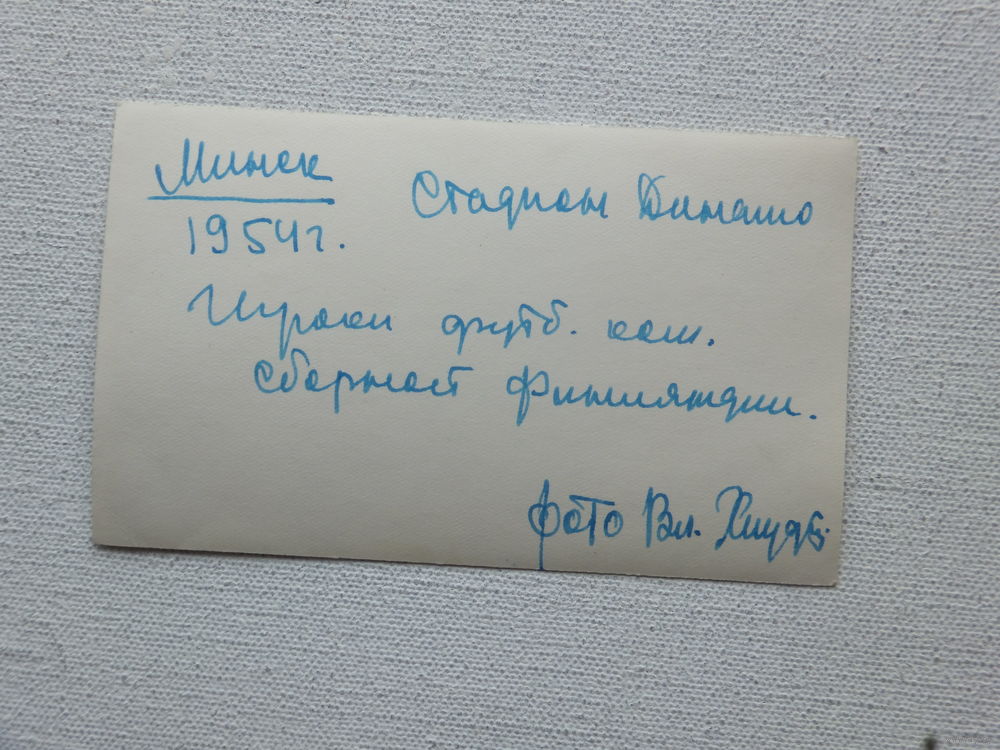 Минск
1954г.
Стадион Динамо
Игроки футб. ком.
сборной Финляндии.
фото Вл.